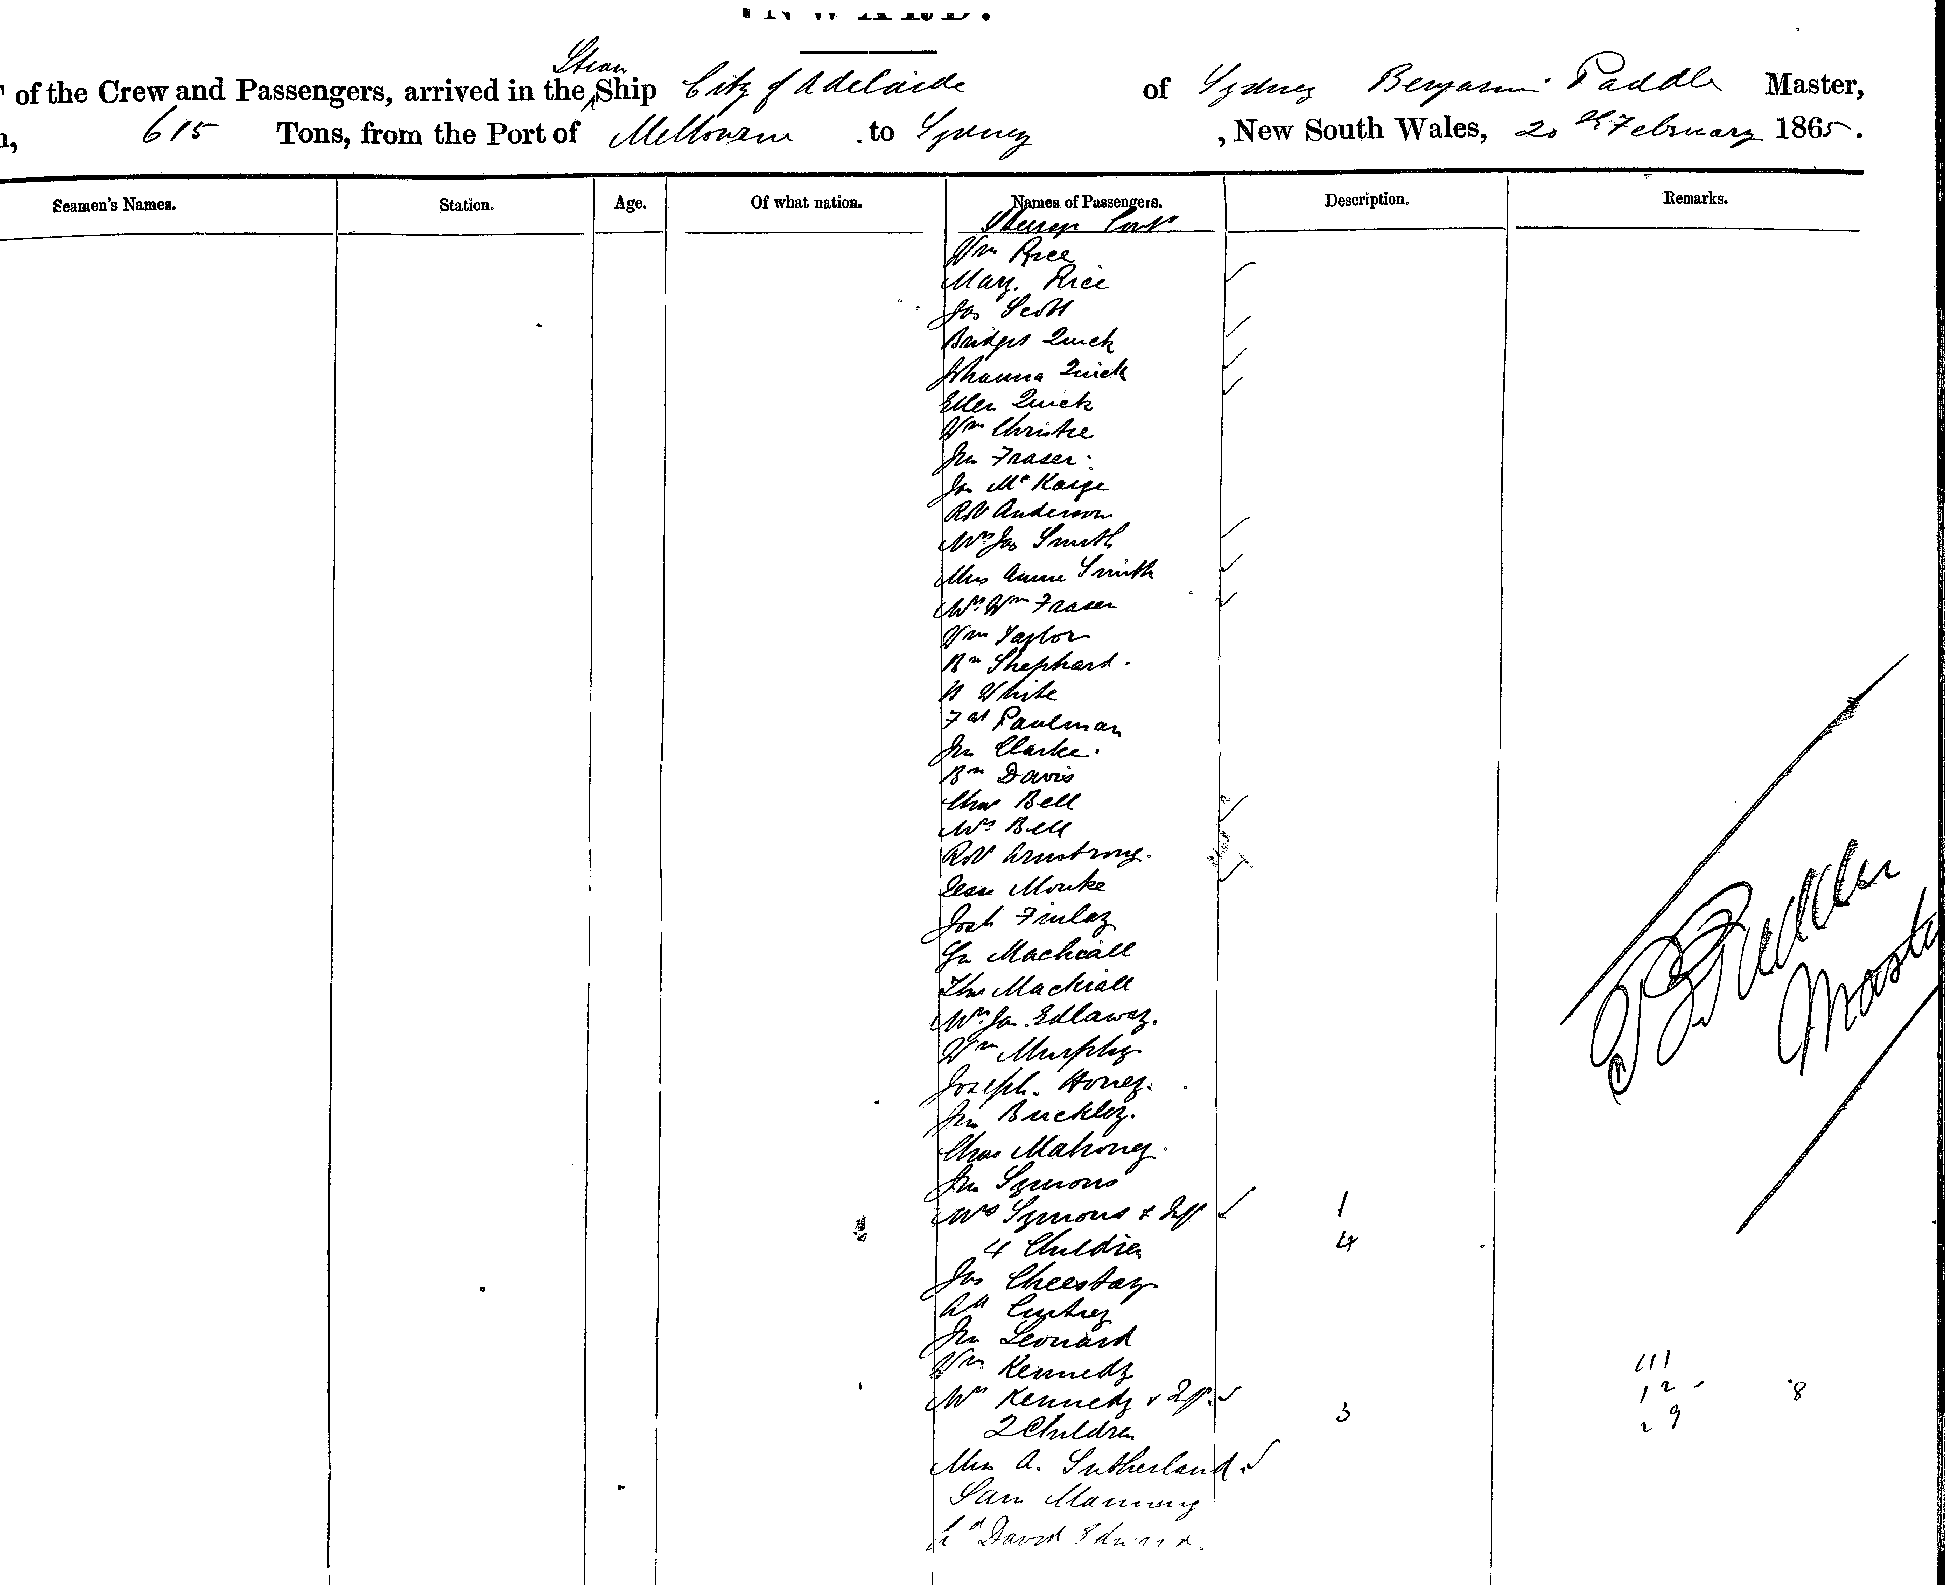 INWARD.
of the Crew and Passengers, arrived in the Steam Ship City of Adelaide of Sydney Benjamin Paddle Master,
615 Tons, from the Port of Melbourne to Sydney, New South Wales, 20th February 1865.
Seamen's Names. Station. Age. Of what nation. Names of Passengers. Description. Remarks.
Wm Rice
Mary. Rice
Jas Scott
Bridget Quick
Johanna Quick
Ellen Quick
Wm Christie
Jn Fraser
Jn McKaige
Robt Anderson
Mrs Jas Smith
Miss Annie Smith
Mrs Wm Fraser
Wm Taylor
Bn Shephard.
White
Paulman
Jn Clarke.
Bn Davis
Chas Bell
Mrs Bell
Robt Armstrong.
Monke
Josh Finlay
Machiall
Thos Machiall
Mrs Jn Edlaway.
Wm Murphy
Joseph. Honey.
Jn Buckley.
Chas Mahoney.
Jn Symons
Mrs Symons & Inft 1
4 Children 4
Jas Cheestay
Jn Leonard
Wm Kennedy
Mrs Kennedy & Inft
2 Children 3
Miss A. Sutherland
Sam Manning
David Edward
B Paddle
Master